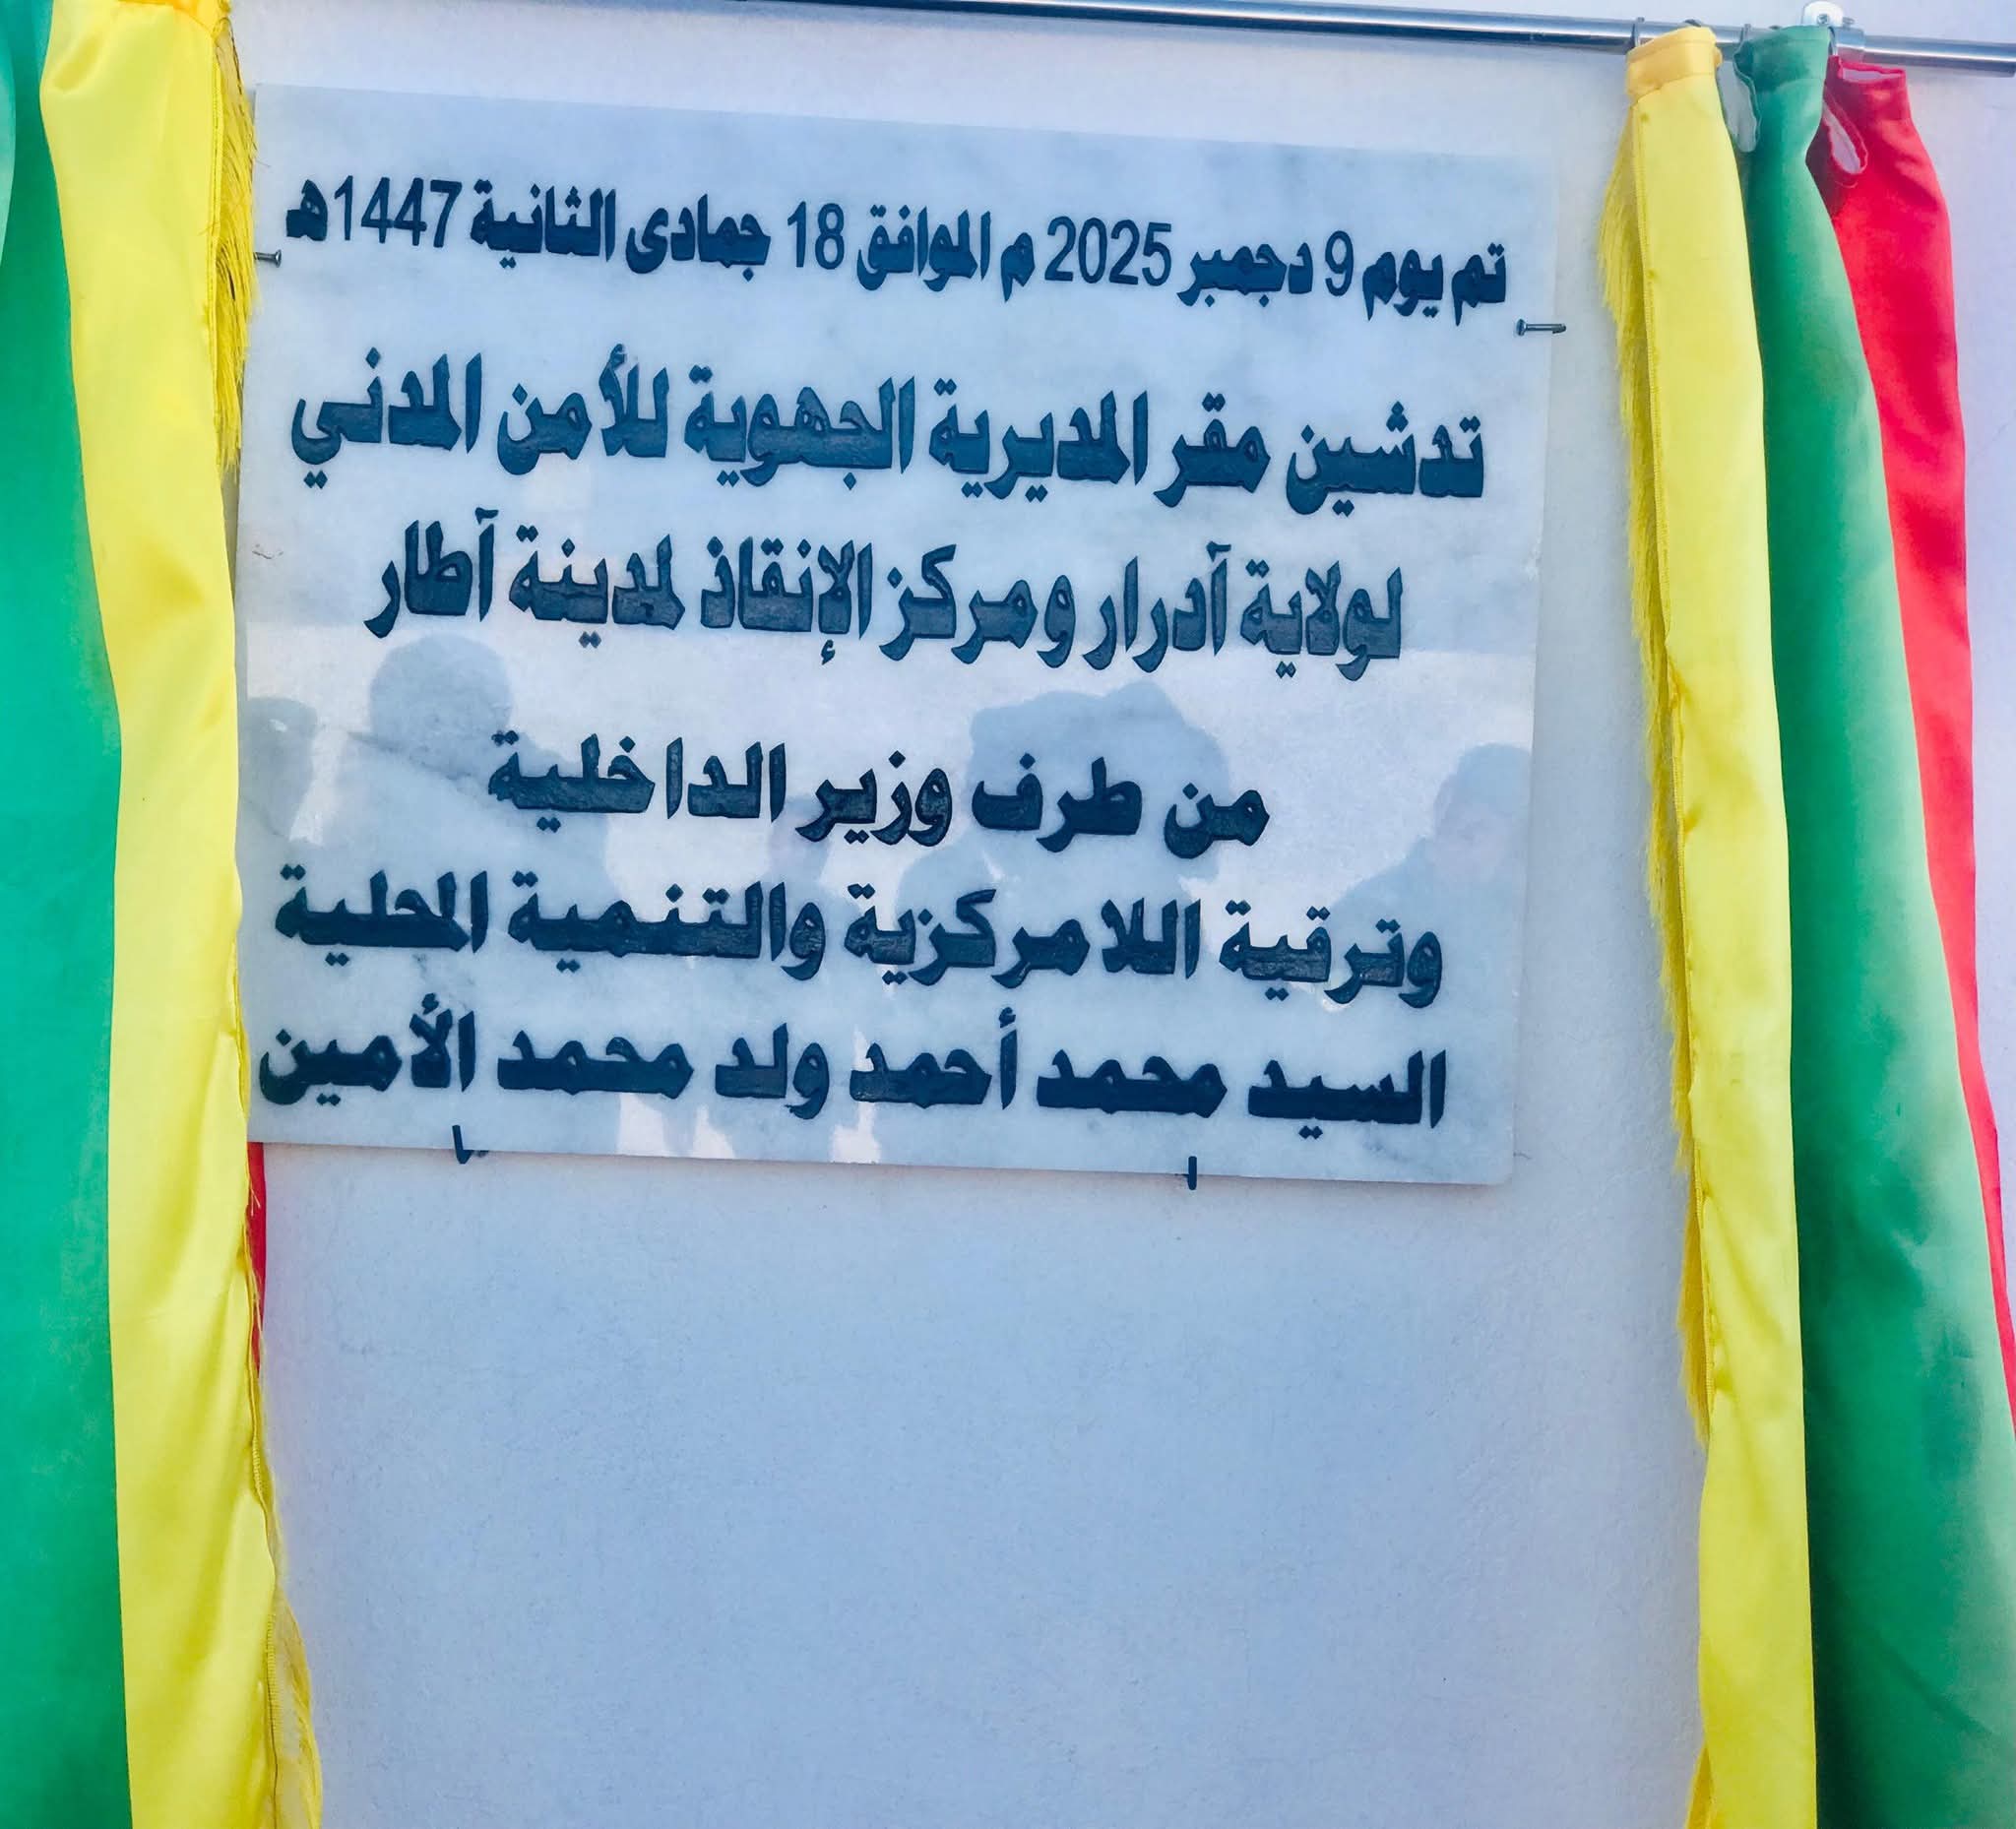 تم يوم 9 دجمبر 2025 م الموافق 18 جمادى الثانية 1447هـ
تدشين مقر المديرية الجهوية للأمن المدني
لولاية آدرار ومركز الإنقاذ لمدينة آطار
من طرف وزير الداخلية
وترقية اللامركزية والتنمية المحلية
السيد محمد أحمد ولد محمد الأمين